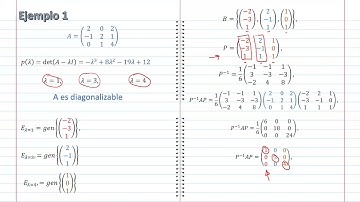 Ejemplo 1
A = ( 2 0 2
-1 2 1
0 1 4 )
p(λ) = det(A − λI) = −λ³ + 8λ² − 19λ + 12
λ = 1, λ = 3, λ = 4
A es diagonalizable
E_{λ=1} = gen { ( -2
-3
1 ) }
E_{λ=3} = gen { ( 2
-1
1 ) }
E_{λ=4} = gen { ( 1
0
1 ) }
B = { ( -2
-3
1 ), ( 2
-1
1 ), ( 1
0
1 ) },
P = ( -2 2 1
-3 -1 0
1 1 1 ),
P⁻¹ = 1/6 ( -1 -1 1
3 -3 -3
-2 4 8 )
P⁻¹AP = 1/6 ( -1 -1 1
3 -3 -3
-2 4 8 ) ( 2 0 2
-1 2 1
0 1 4 ) ( -2 2 1
-3 -1 0
1 1 1 )
P⁻¹AP = 1/6 ( 6 0 0
0 18 0
0 0 24 ),
P⁻¹AP = ( 1 0 0
0 3 0
0 0 4 ),